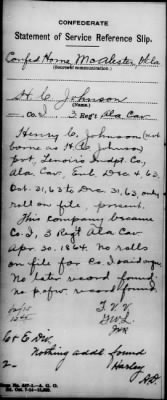 CONFEDERATE
Statement of Service Reference Slip.
Confed Home, McAlester, Okla
(Secretary communication.)
H C Johnson
(Name.)
Co. I, 3 Reg't Ala Cav
Henry C. Johnson (not
borne as H. C. Johnson
pvt, Lenoir's Indpt Co,
Ala. Cav. Enl Dec 4, 63,
Oct. 31, 63 to Dec 31, 63, only
roll on file, present.
This company became
Co. I, 3 Reg't Ala Cav
Apr. 30. 1864. No rolls
on file for Co I
No later record found.
no record found.
Cr E Div.
Nothing addl found
2- Harley